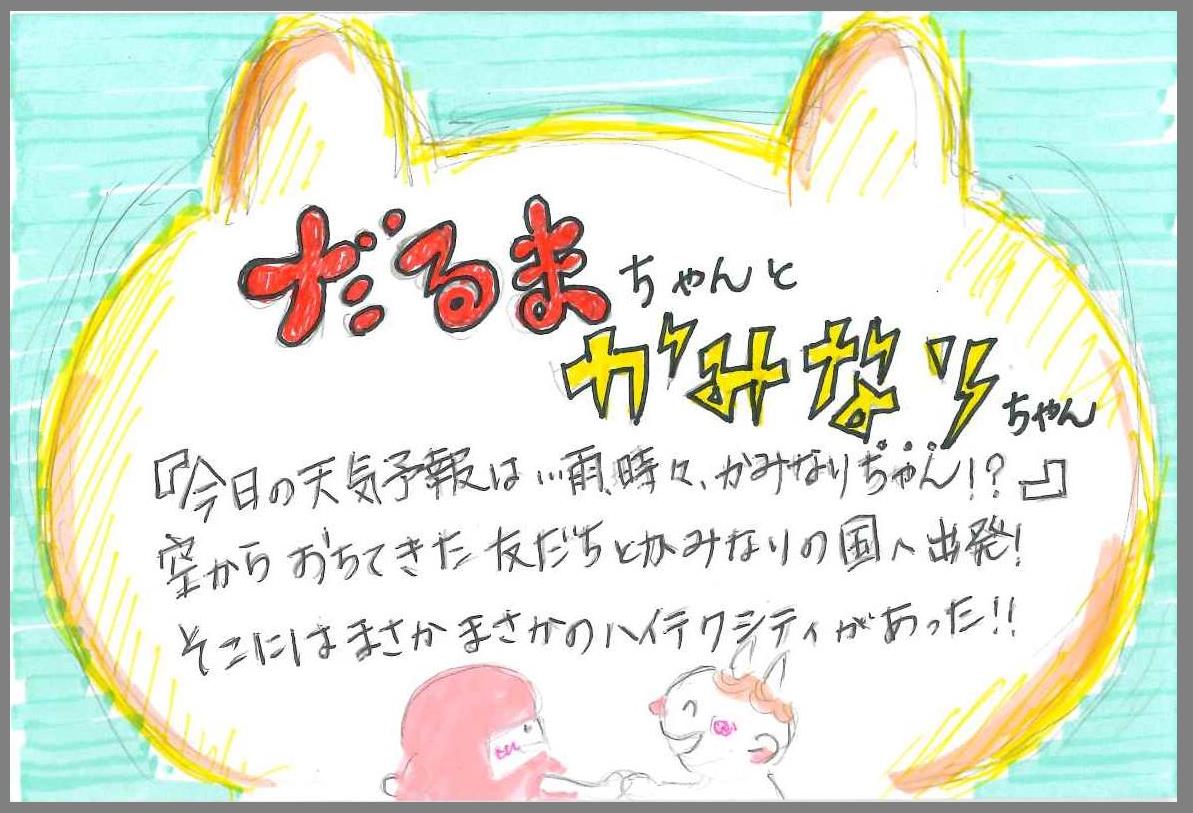 だるまちゃんと
かみなりちゃん
『今日の天気予報は…雨、時々、かみなりちゃん!?』
空からおちてきた友だちとかみなりの国へ出発!
そこにはまさかまさかのハイテクシティがあった!!